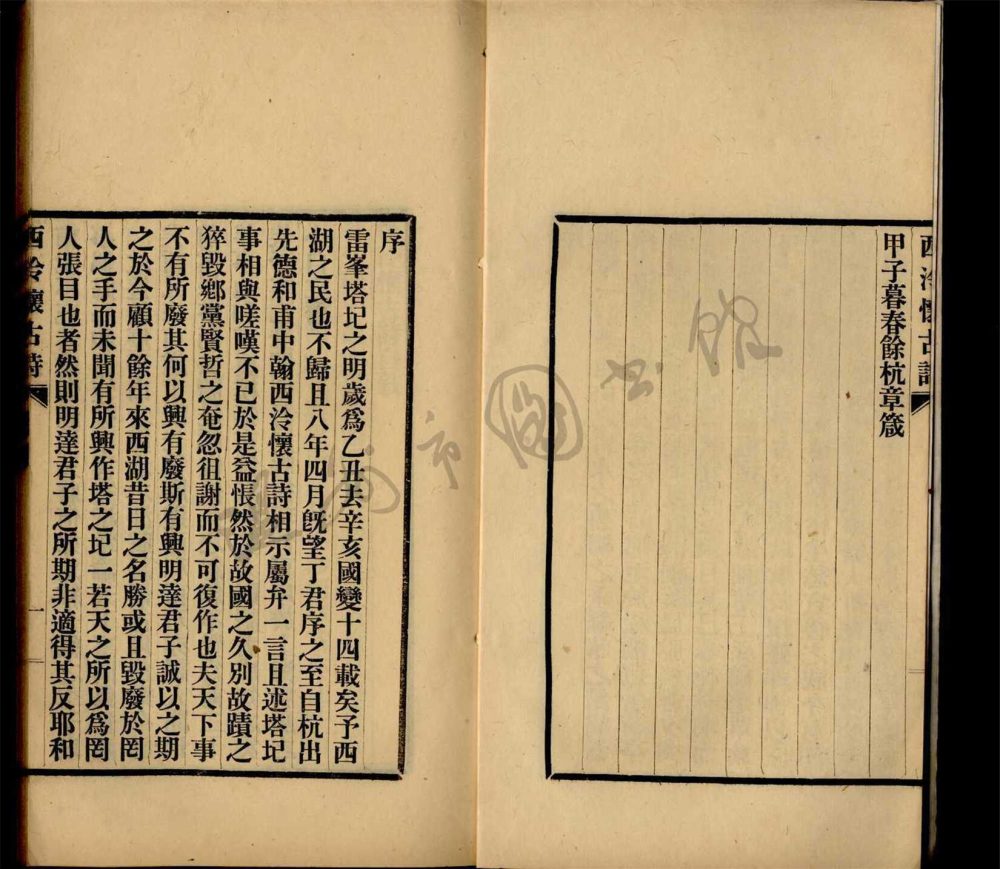 西泠懷古詩
甲子暮春餘杭章箴
序
雷峯塔圮之明歲爲乙丑去辛亥國變十四載矣予西
湖之民也不歸且八年四月旣望丁君序之至自杭出
先德和甫中翰西泠懷古詩相示屬弁一言且述塔圮
事相與嗟嘆不已於是益悵然於故國之久別故蹟之
猝毀鄉黨賢哲之奄忽徂謝而不可復作也夫天下事
不有所廢其何以興有廢斯有興明達君子誠以之期
之於今顧十餘年來西湖昔日之名勝或且毀廢於罔
人之手而未聞有所興作塔之圮一若天之所以爲罔
人張目也者然則明達君子之所期非適得其反耶和
西泠懷古詩
一
市圖書館